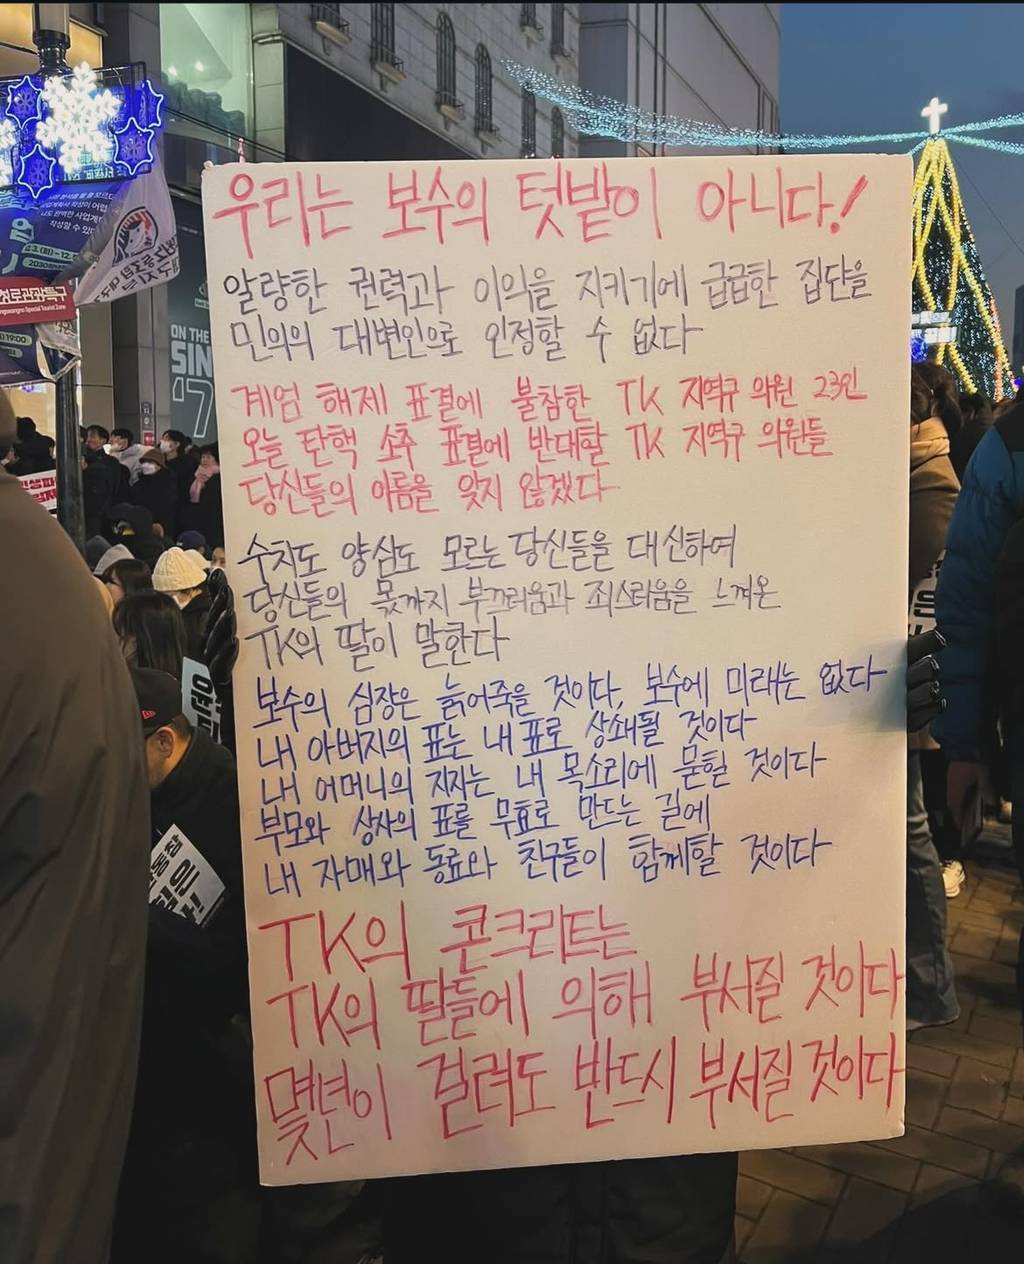 우리는 보수의 텃밭이 아니다!
알량한 권력과 이익을 지키기에 급급한 집단을
민의의 대변인으로 인정할 수 없다
계엄 해제 표결에 불참한 TK 지역구 의원 23인
오늘 탄핵 소추 표결에 반대할 TK 지역구 의원들
당신들의 이름을 잊지 않겠다
수치도 양심도 모르는 당신들을 대신하여
당신들의 몫까지 부끄러움과 죄스러움을 느껴온
TK의 딸이 말한다
보수의 심장은 늙어죽을 것이다, 보수에 미래는 없다
내 아버지의 표는 내 표로 상쇄될 것이다
내 어머니의 지지는 내 목소리에 묻힐 것이다
부모와 상사의 표를 무효로 만드는 길에
내 자매와 동료와 친구들이 함께할 것이다
TK의 콘크리트는
TK의 딸들에 의해 부서질 것이다
몇년이 걸려도 반드시 부서질 것이다
ON THE
SIN
'7